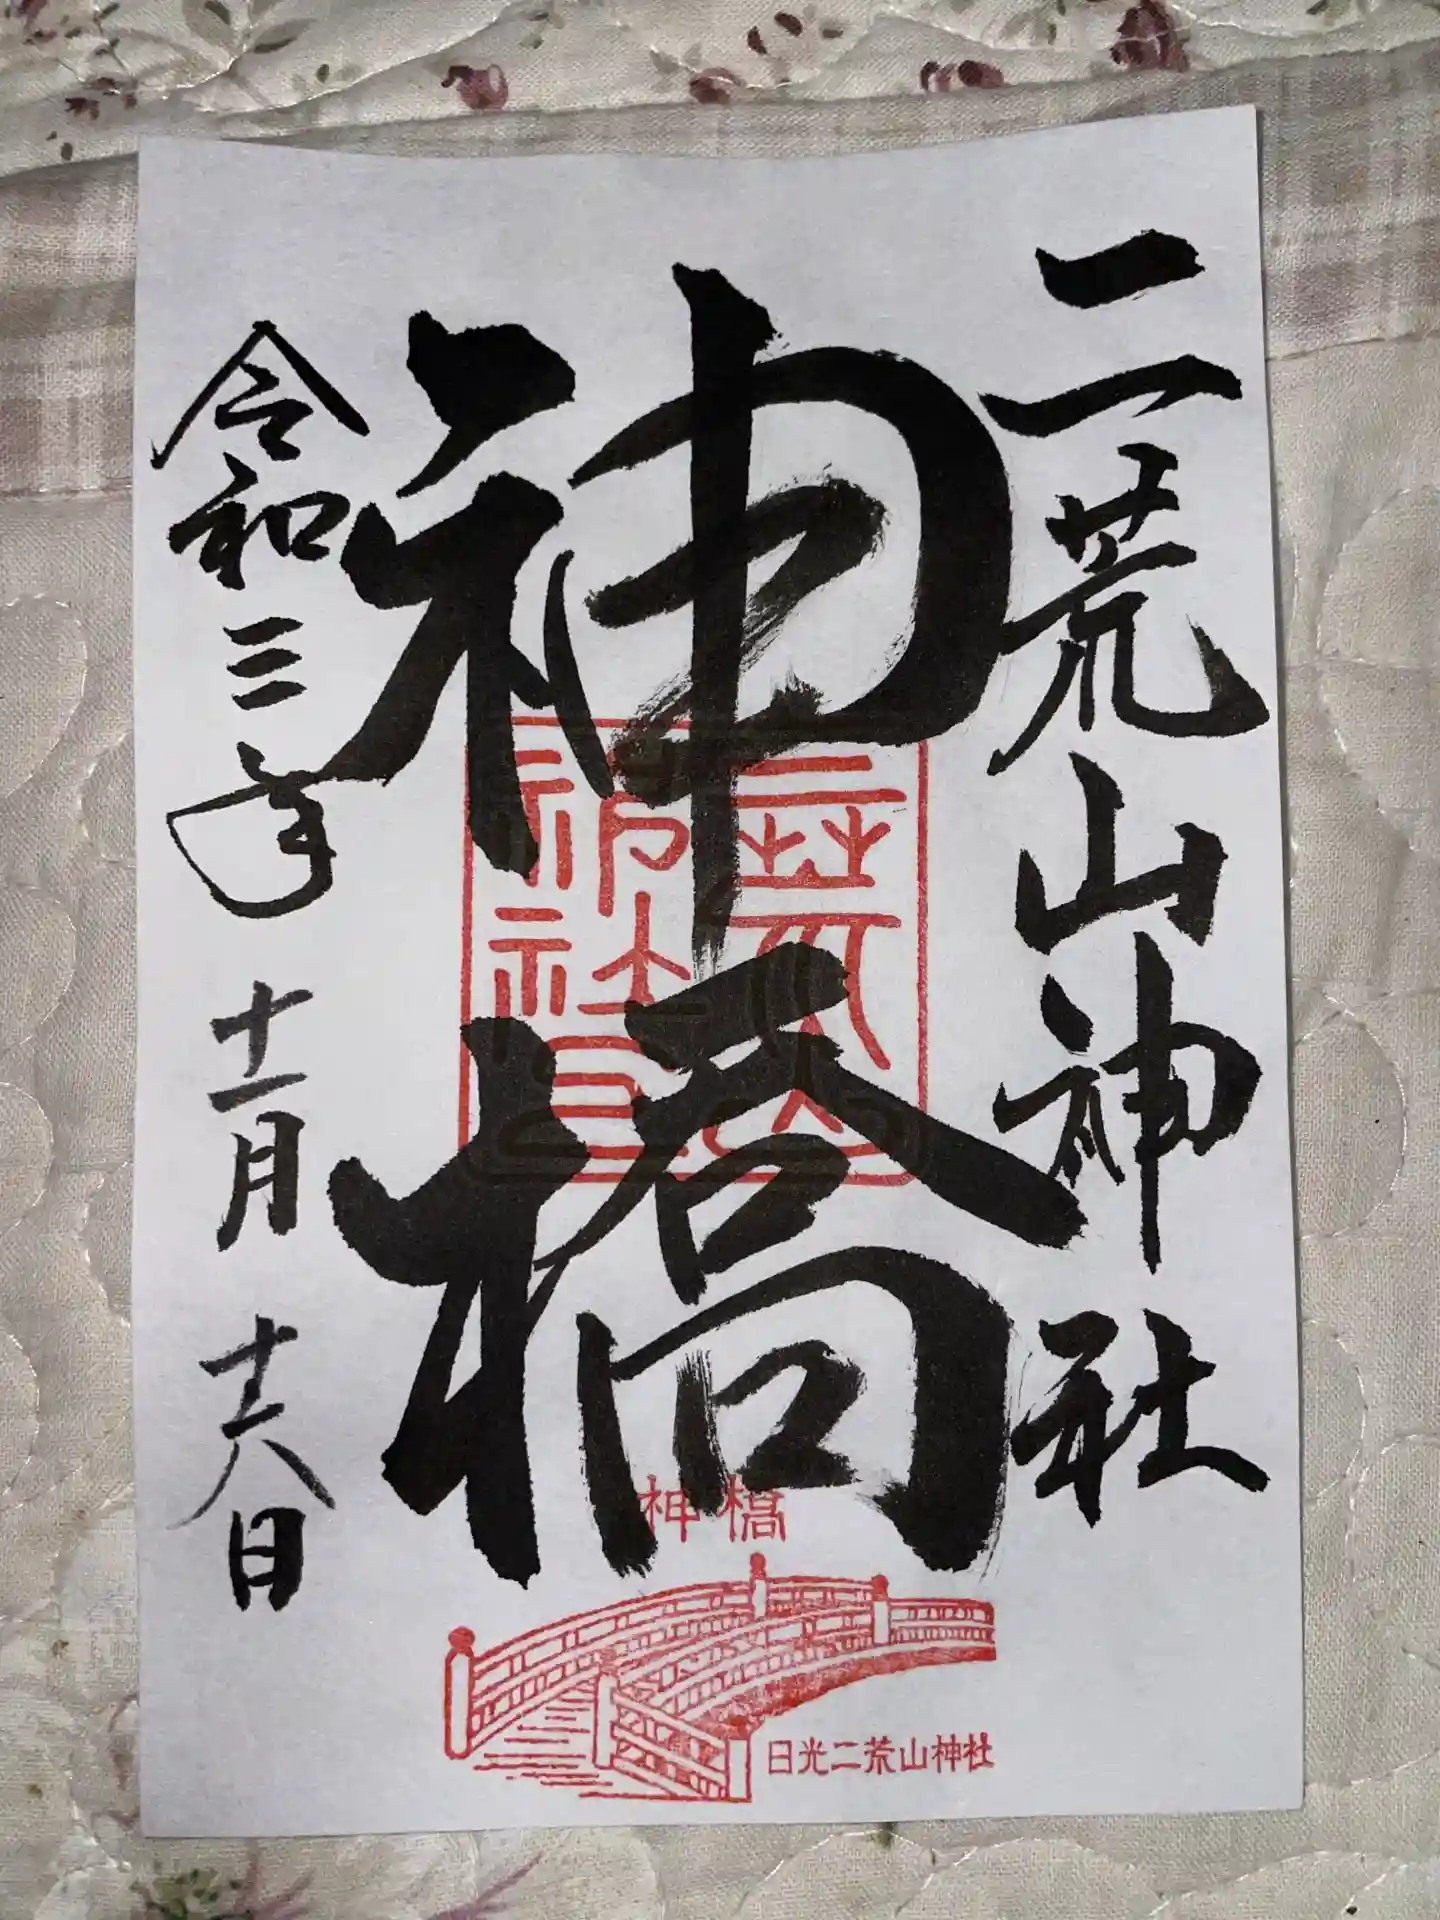 二荒山神社
神橋
令和三年十一月十六日
二荒山神社
神橋
日光二荒山神社